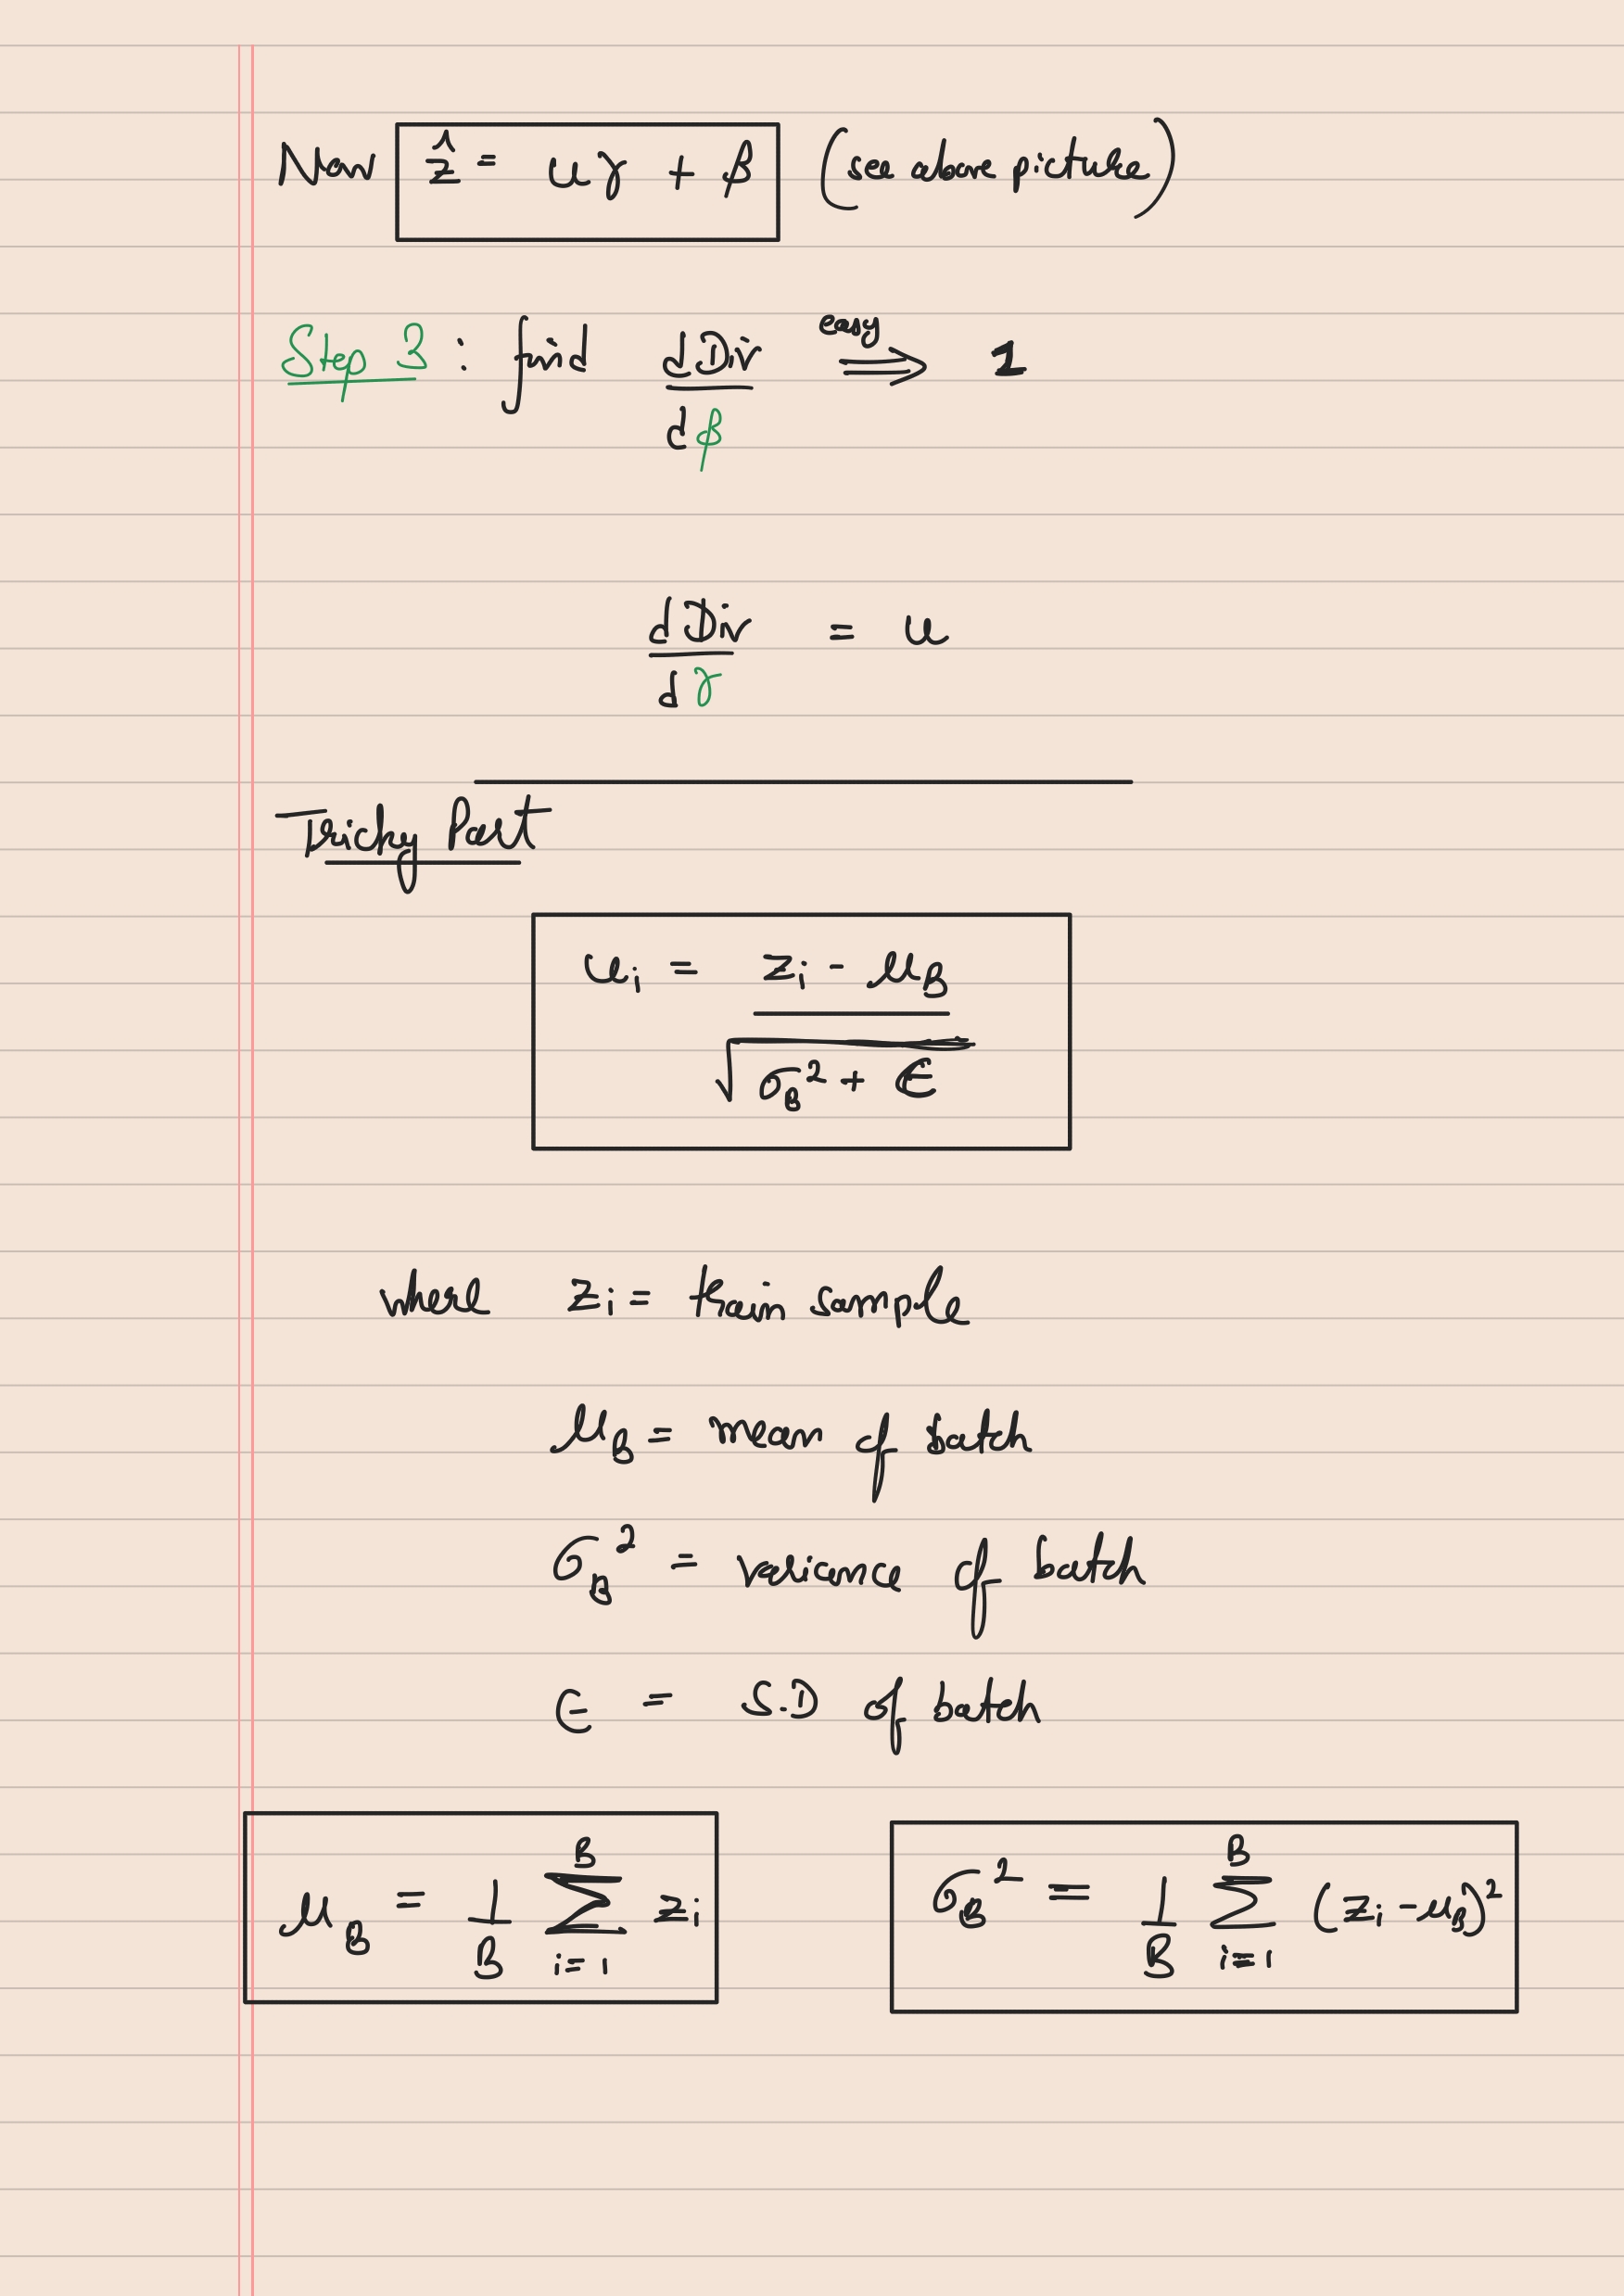 Now ẑ = uγ + β (see above picture)
Step 3 : find dDiv/dβ ⟹ (easy) 1
dDiv/dγ = u
Tricky Part
uᵢ = (zᵢ - μ_B) / √(σ_B² + ϵ)
where zᵢ = train sample
μ_B = mean of batch
σ_B² = variance of batch
ϵ = S.D of batch
μ_B = 1/B ∑_{i=1}^{B} zᵢ
σ_B² = 1/B ∑_{i=1}^{B} (zᵢ - μ_B)²